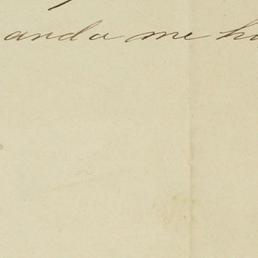 anda me hi